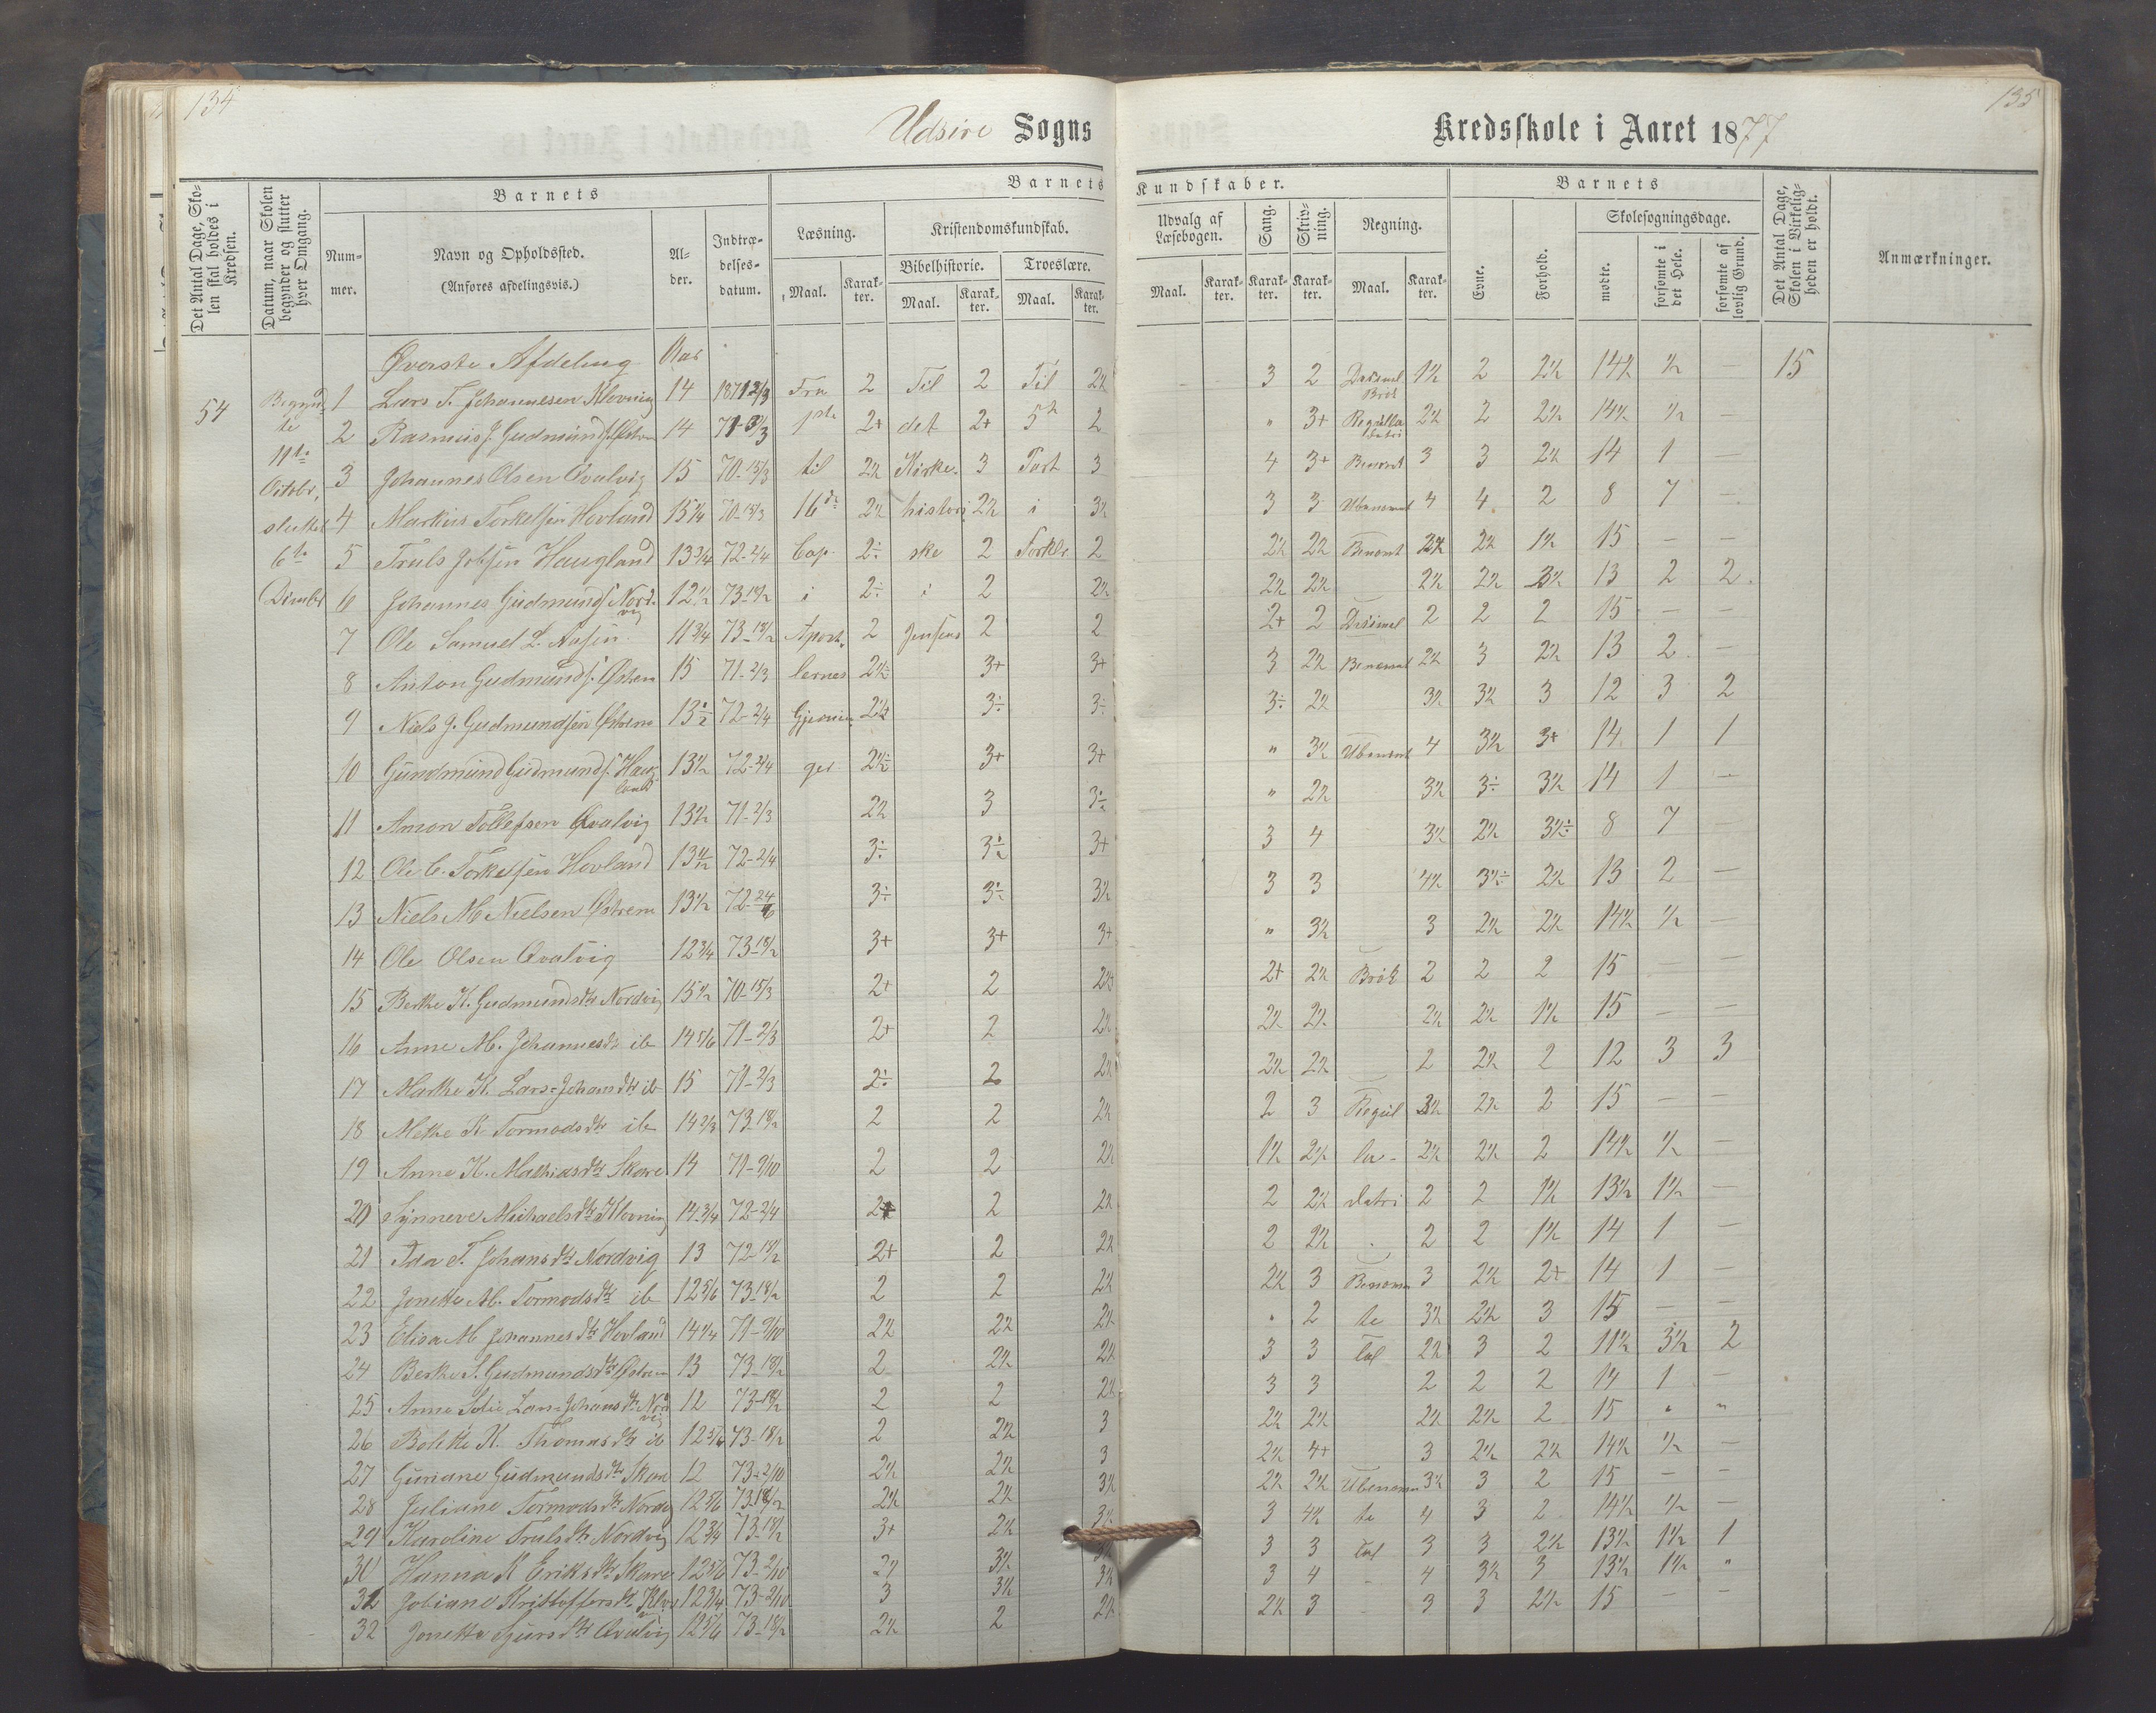 134
135
Udsire Sogns
Kredsskole i Aaret 1877
Det Antal Dage, Skolen skal holdes i Kredsen.
Datum, naar Skolen begynder og slutter hver Omgang.
Barnets
Nummer.
Navn og Opholdssted.
(Anføres afdelingsvis.)
Alder.
Indtrædelsesdatum.
Barnets Kundskaber.
Læsning.
Maal. Karakter.
Kristendomskundskab.
Bibelhistorie. Troeslære.
Maal. Karakter. Maal. Karakter.
Udvalg af Læsebogen.
Maal. Karakter.
Sang. Karakter.
Skrivning. Karakter.
Regning.
Maal. Karakter.
Barnets
Evne.
Forhold.
Skolesøgningsdage.
mødte.
forsømte i det Hele.
forsømte af lovlig Grund.
Det Antal Dage, Skolen i Virkeligheden er holdt.
Anmærkninger.
Øverste Afdeling Aar
54 Begyndte 11te Octobr, sluttet 6te Decmbr
1 Lars T. Johannesen Klovning 14 1871 2/3 Fra 2 Til 2 Til 2½ 3 2 Desimal Brøk 1½ 2 2½ 14½ ½ — 15
2 Rasmus J. Gudmunds. Østrem 14 71-2/3 1ste 2+ det 2+ 5te 2 " 3+ Regulla detri 2½ 2 2½ 14½ ½ —
3 Johannes Olsen Qvalvig 15 70-15/3 til 2½ Kirke- 3 Part 3 4 3+ Benevnt 3 3 2½ 14 1 —
4 Markus Torkelsen Hovland 15¼ 70-15/3 16de 2½ histori 2½ i 3½ 3 3 Ubenevnt 4 4 2 8 7 —
5 Truls Jobsen Haugland 13¾ 72-2/4 Cap. 2÷ ske 2 Forkla 2 2½ 2½ Benevnt 2½ 2½ 1½ 15 — —
6 Johannes Gudmunds. Nordvig 12½ 73-18/2 i 2÷ i 2 2½ 2½ 2½ 2½ 2½ 3½ 13 2 2
7 Ole Samuel L. Nasen 11¾ 73-18/2 Apost 2 Jensens 2 2 2+ 2 Desimal 2 2 2 15 — —
8 Anton Gudmunds. Østrem 15 71-2/3 lernes 2½ 3+ 3+ 3 2½ Benevnt 2½ 3 2½ 13 2 —
9 Niels J. Gudmundsen Østrem 13½ 72-2/4 Gjernin 2½ 3÷ 3÷ 3÷ 2½ 3½ 3½ 3 12 3 2
10 Gundmund Gudmunds. Haugland 13½ 72-2/4 ger 2½ 3+ 3+ " 3½ Ubenevnt 4 3½ 3+ 14 1 1
11 Amon Tollefsen Qvalvig 13½ 71-2/3 2½ 3 3÷ " 2½ 3½ 3÷ 3½ 14 1 —
12 Ole C. Torkelsen Hovland 72-2/4 3÷ 3÷ 3+ 3 4 3½ 2½ 3½÷ 8 7 —
13 Niels M Nielsen Østrem 13½ 72 3÷ 3÷ 3½ 3 3 4½ 3½÷ 2½ 13 2 —
14 Ole Olsen Qvalvig 12¾ 73-18/2 3+ 3+ 3+ " 3½ 3 2½ 2½ 14½ ½ —
15 Berthe K. Gudmundsdtr Nordvig 15½ 70-15/3 2+ 2 2½ 2+ 2½ Brøk 2 2 2 15 — —
16 Anne M. Johannesdtr ib 14 5/6 71-2/3 2+ 2 2½ 2½ 2½ 2½ 2½ 1½ 15 — —
17 Marthe K. Lars-Johansdtr ib 15 71-2/3 2÷ 2 2½ 2½ 2½ 2 2½ 2 12 3 3
18 Methe K Tormodsdtr ib 14 2/3 73-18/2 2 2 2½ 2 3 Regul 3½ 2½ 2 15 — —
19 Anne K. Mathiasdtr Skare 14 71-9/10 2 2 2½ 1½ 2½ la- 2½ 2½ 2 14½ ½ —
20 Synneve Michaelsdtr Klovning 14¾ 72-2/4 2+ 2 2½ 2 2½ detri 2 2 1½ 13½ 1½ —
21 Ida T. Johansdtr Nordvig 13 72-18/2 2+ 2 2½ 2 2½ 2 2 1½ 14 1 —
22 Jonette M. Tormodsdtr ib 12 5/6 73-18/2 2 2 2½ 2½ 3 Benevn 3 2½ 2+ 14 1 —
23 Elisa M Johannesdtr Hovland 14¼ 71-9/10 2½ 2½ 2½ " 2 te 3½ 2½ 3 15 — —
24 Berthe S. Gudmundsdtr Østrem 13 73-18/2 2 2½ 2½ 3 3 Tal 2½ 3 2 11½ 3½ 2
25 Anne Sofie Lars-Johansdtr Nordvig 12 73-18/2 2 2 2½ 3 3 2 2 2 14 1 —
26 Bolette K. Thomasdtr ib 12 5/6 73-18/2 2 2½ 3 2½ 2½ 2½ 2½ 2 15 " "
27 Guriane Gudmundsdtr Skare 12 73-2/10 2½ 2½ 3 2½ 4+ 3 2½ 2½ 14½ ½ —
28 Juliane Tormodsdtr Nordvig 12 5/6 73-18/2 2½ 2½ 3½ 2½ 2½ Ubenevn 3½ 3 2 15 — —
29 Karoline Trulsdtr Nordvig 12¾ 73-18/2 3+ 2½ 3½ 3 4½ te 4 3 2 14½ ½ —
30 Hanna K Eriksdtr Skare 12 5/6 73-2/10 2½ 3½ 3 3 Tal 3 3 2½ 13½ 1½ 1
31 Joliane Kristoffersdtr Klov 12¾ 73-2/10 3 3½ 3½ 3 4 4 3½ 3 13½ 1½ "
32 Jonette Sjursdtr Qvalvig 12 5/6 73-18/2 2½ 2 2½ 2½ 3 3 3 2½ 15 — —